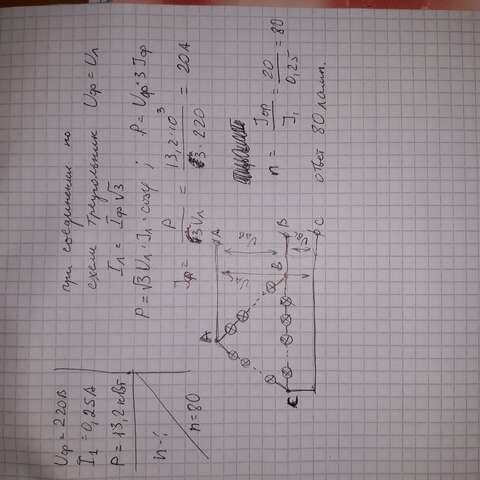 Uф = 220В
I1 = 0,25А
P = 13,2 кВт
n - ?
n = 80
при соединении по
схеме треугольник Uф = Uл
Iл = Iф √3
P = √3 Uл · Iл · cosφ ; P = Uф · 3 Iф
Iф = P / 3 Uл = 13,2·10³ / 3·220 = 20А
n = Iф / I1 = 20 / 0,25 = 80
ответ 80 ламп.
A
A
B
B
C
C